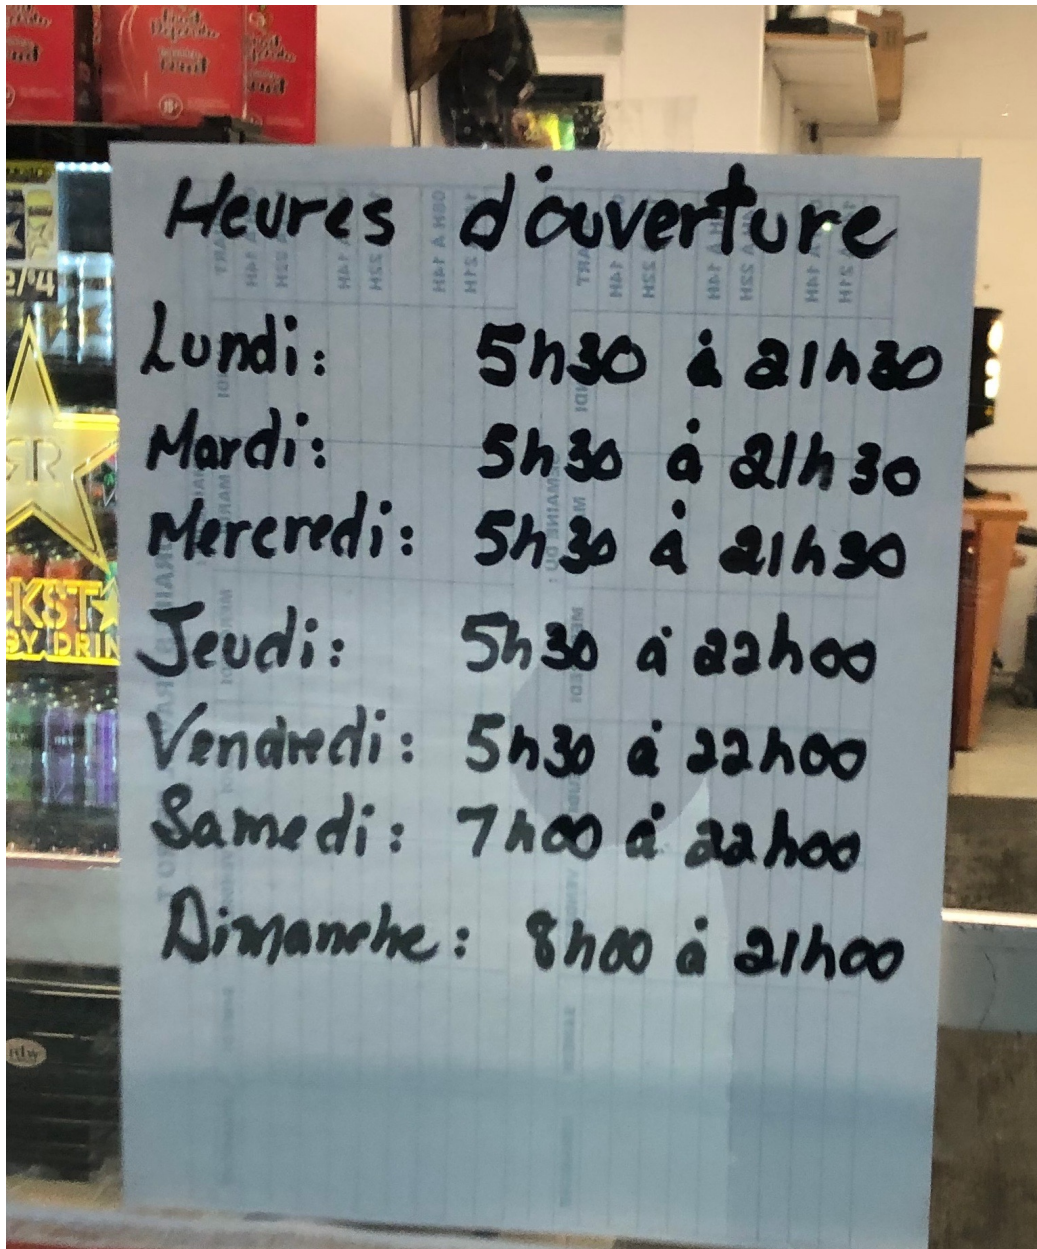 Heures d'ouverture
Lundi: 5h30 à 21h30
Mardi: 5h30 à 21h30
Mercredi: 5h30 à 21h30
Jeudi: 5h30 à 22h00
Vendredi: 5h30 à 22h00
Samedi: 7h00 à 22h00
Dimanche: 8h00 à 21h00